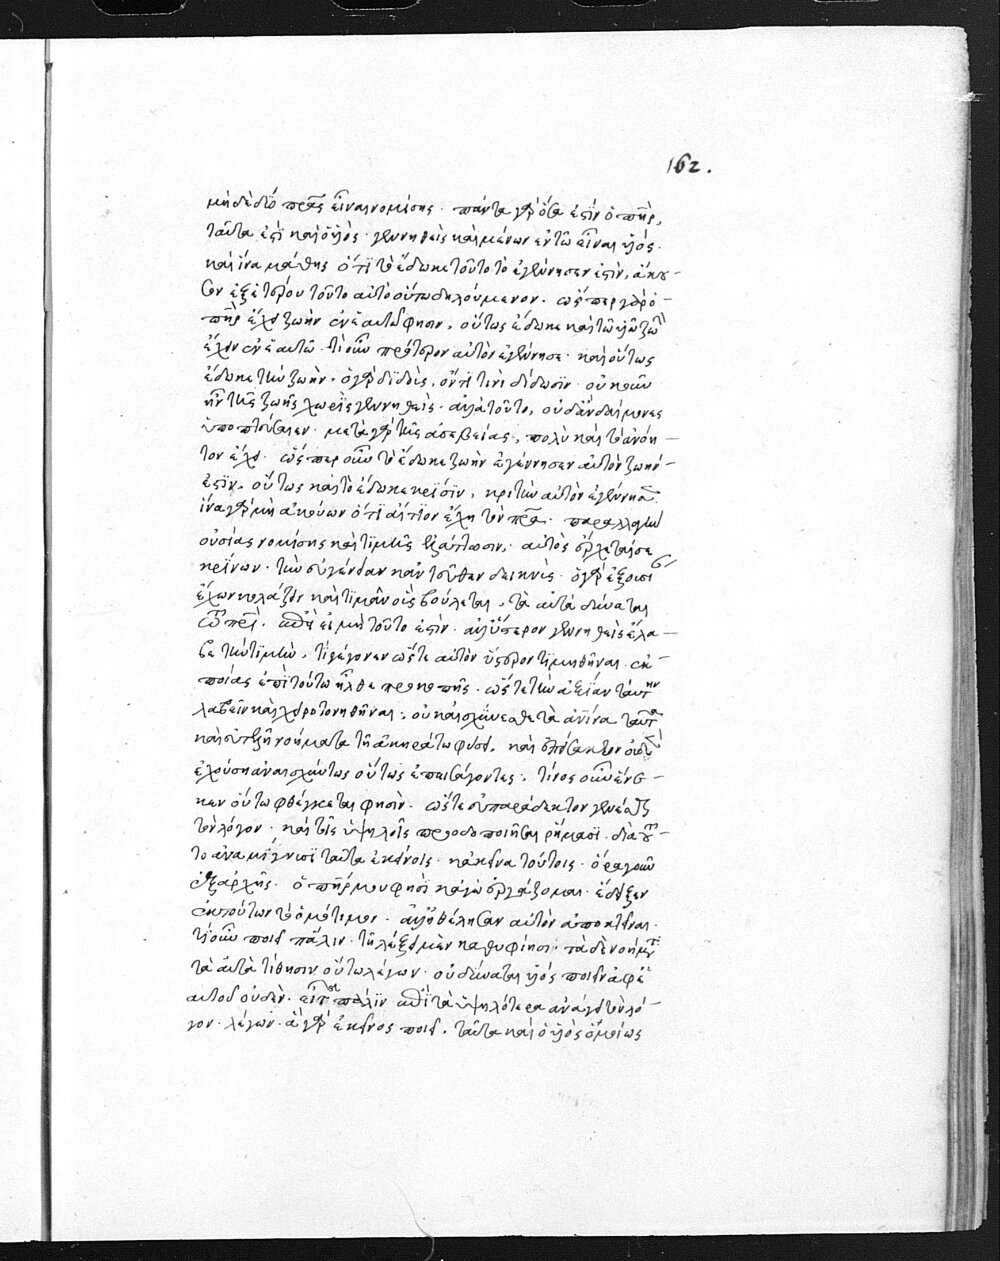 μὴδὲ δύο πρας εἶναι νομίσης. πάντα γὰρ ὅσα ἐστὶν ὁ πηρ,
ταῦτα ἐστὶ καὶ ὁ υἱὸς. γεννηθεὶς καὶ μένων ἐν τῶ εἶναι υἱὸς.
καὶ ἵνα μάθης ὅτι τὸ ἔδωκε τοῦτο τὸ ἐγέννησεν ἐστὶν, ἄκου-
σον ἐξ ἑτέρου τοῦτο αὐτὸ οὕτω δηλούμενον. ὥσπερ γὰρ ὁ
πηρ ἔχει ζωὴν ἐν ἑαυτῶ φησιν, οὕτως ἔδωκε καὶ τῶ υἱῶ ζωὴν
ἔχειν ἐν ἑαυτῶ. τί οὖν πρότερον αὐτὸν ἐγέννησε. καὶ οὕτως
ἔδωκε τὴν ζωήν. ὁ γὰρ διδοὺς, ὄντι τινὶ δίδωσιν. οὐκοῦν
ἦν τῆς ζωῆς χωρὶς γεννηθείς. ἀλλὰ τοῦτο, οὐδ' ἂν δαίμονες
ὑποπτεύσαιεν. μετὰ γὰρ τῆς ἀσεβείας, πολὺ καὶ τὸ ἀνόη-
τον ἔχει. ὥσπερ οὖν τὸ ἔδωκε ζωὴν ἐγέννησεν αὐτὸν ζωήν-
ἐστιν. οὕτως καὶ τὸ ἔδωκε κρίσιν, κριτὴν αὐτὸν ἐγέννησε.
ἵνα γὰρ μὴ ἀκούων ὅτι αἴτιον ἔχη τὸν πρα. παραλλαγὴν
οὐσίας νομίσης καὶ τιμῆς ἐλάττωσιν, αὐτὸς ἔρχεται σε
κρίνων. τὴν συγγένειαν κἀντεῦθεν δεικνύς. ὁ γὰρ ἐξουσίαν
ἔχων κολάζειν καὶ τιμᾶν οὓς βούλεται, τὰ αὐτὰ δύναται
τῶ πρι. ἐπεὶ εἰ μὴ τοῦτο ἐστὶν. ἀλλ' ὕστερον γεννηθεὶς ἔλα-
βε τὴν τιμὴν, τί γέγονεν ὥστε αὐτὸν ὕστερον τιμηθῆναι. ἐκ
ποίας ἐπὶ τούτω ἦλθε προκοπῆς. ὥστε τὴν ἀξίαν ταύτην
λαβεῖν καὶ χειροτονηθῆναι. οὐκ αἰσχύνεσθε τὰ ἀνθινα ταῦτα
καὶ εὐτελῆ νοήματα τῆ ἀκηράτω φύσει, καὶ οὐδὲν
ἐχούση ἀναισχύντως οὕτως ἐπεισάγοντες. τίνος οὖν ἕνε-
κεν οὕτω φθέγγεται φησίν. ὥστε εὐπαράδεκτον γενέσθαι
τὸν λόγον. καὶ τοῖς ὑψηλοῖς προοδοποιῆσαι ρήμασι. διὰ τοῦ-
το ἀναμίγνυσι ταῦτα ἐκείνοις. κἀκεῖνα τούτοις. ὅρα γοῦν
ἐξ ἀρχῆς. ὁ πηρ μου φησὶ κἀγὼ ἐργάζομαι. ἔδειξεν
ἐκ τούτων τὸ ὁμότιμον. ἀλλ' ἠθέλησαν αὐτὸν ἀποκτεῖναι.
τί οὖν ποιεῖ πάλιν. τῆ λέξει μὲν καθυφίησι. τὰ δὲ νοήματα
τὰ αὐτὰ τίθησιν οὕτω λέγων. οὐ δύναται υἱὸς ποιεῖν ἀφ' ἑ-
αυτοῦ οὐδέν. εἶτα πάλιν ἐπὶ τὰ ὑψηλότερα ἀνάγει τὸν λό-
γον. λέγων. ἃ γὰρ ἐκεῖνος ποιεῖ. ταῦτα καὶ ὁ υἱὸς ὁμοίως